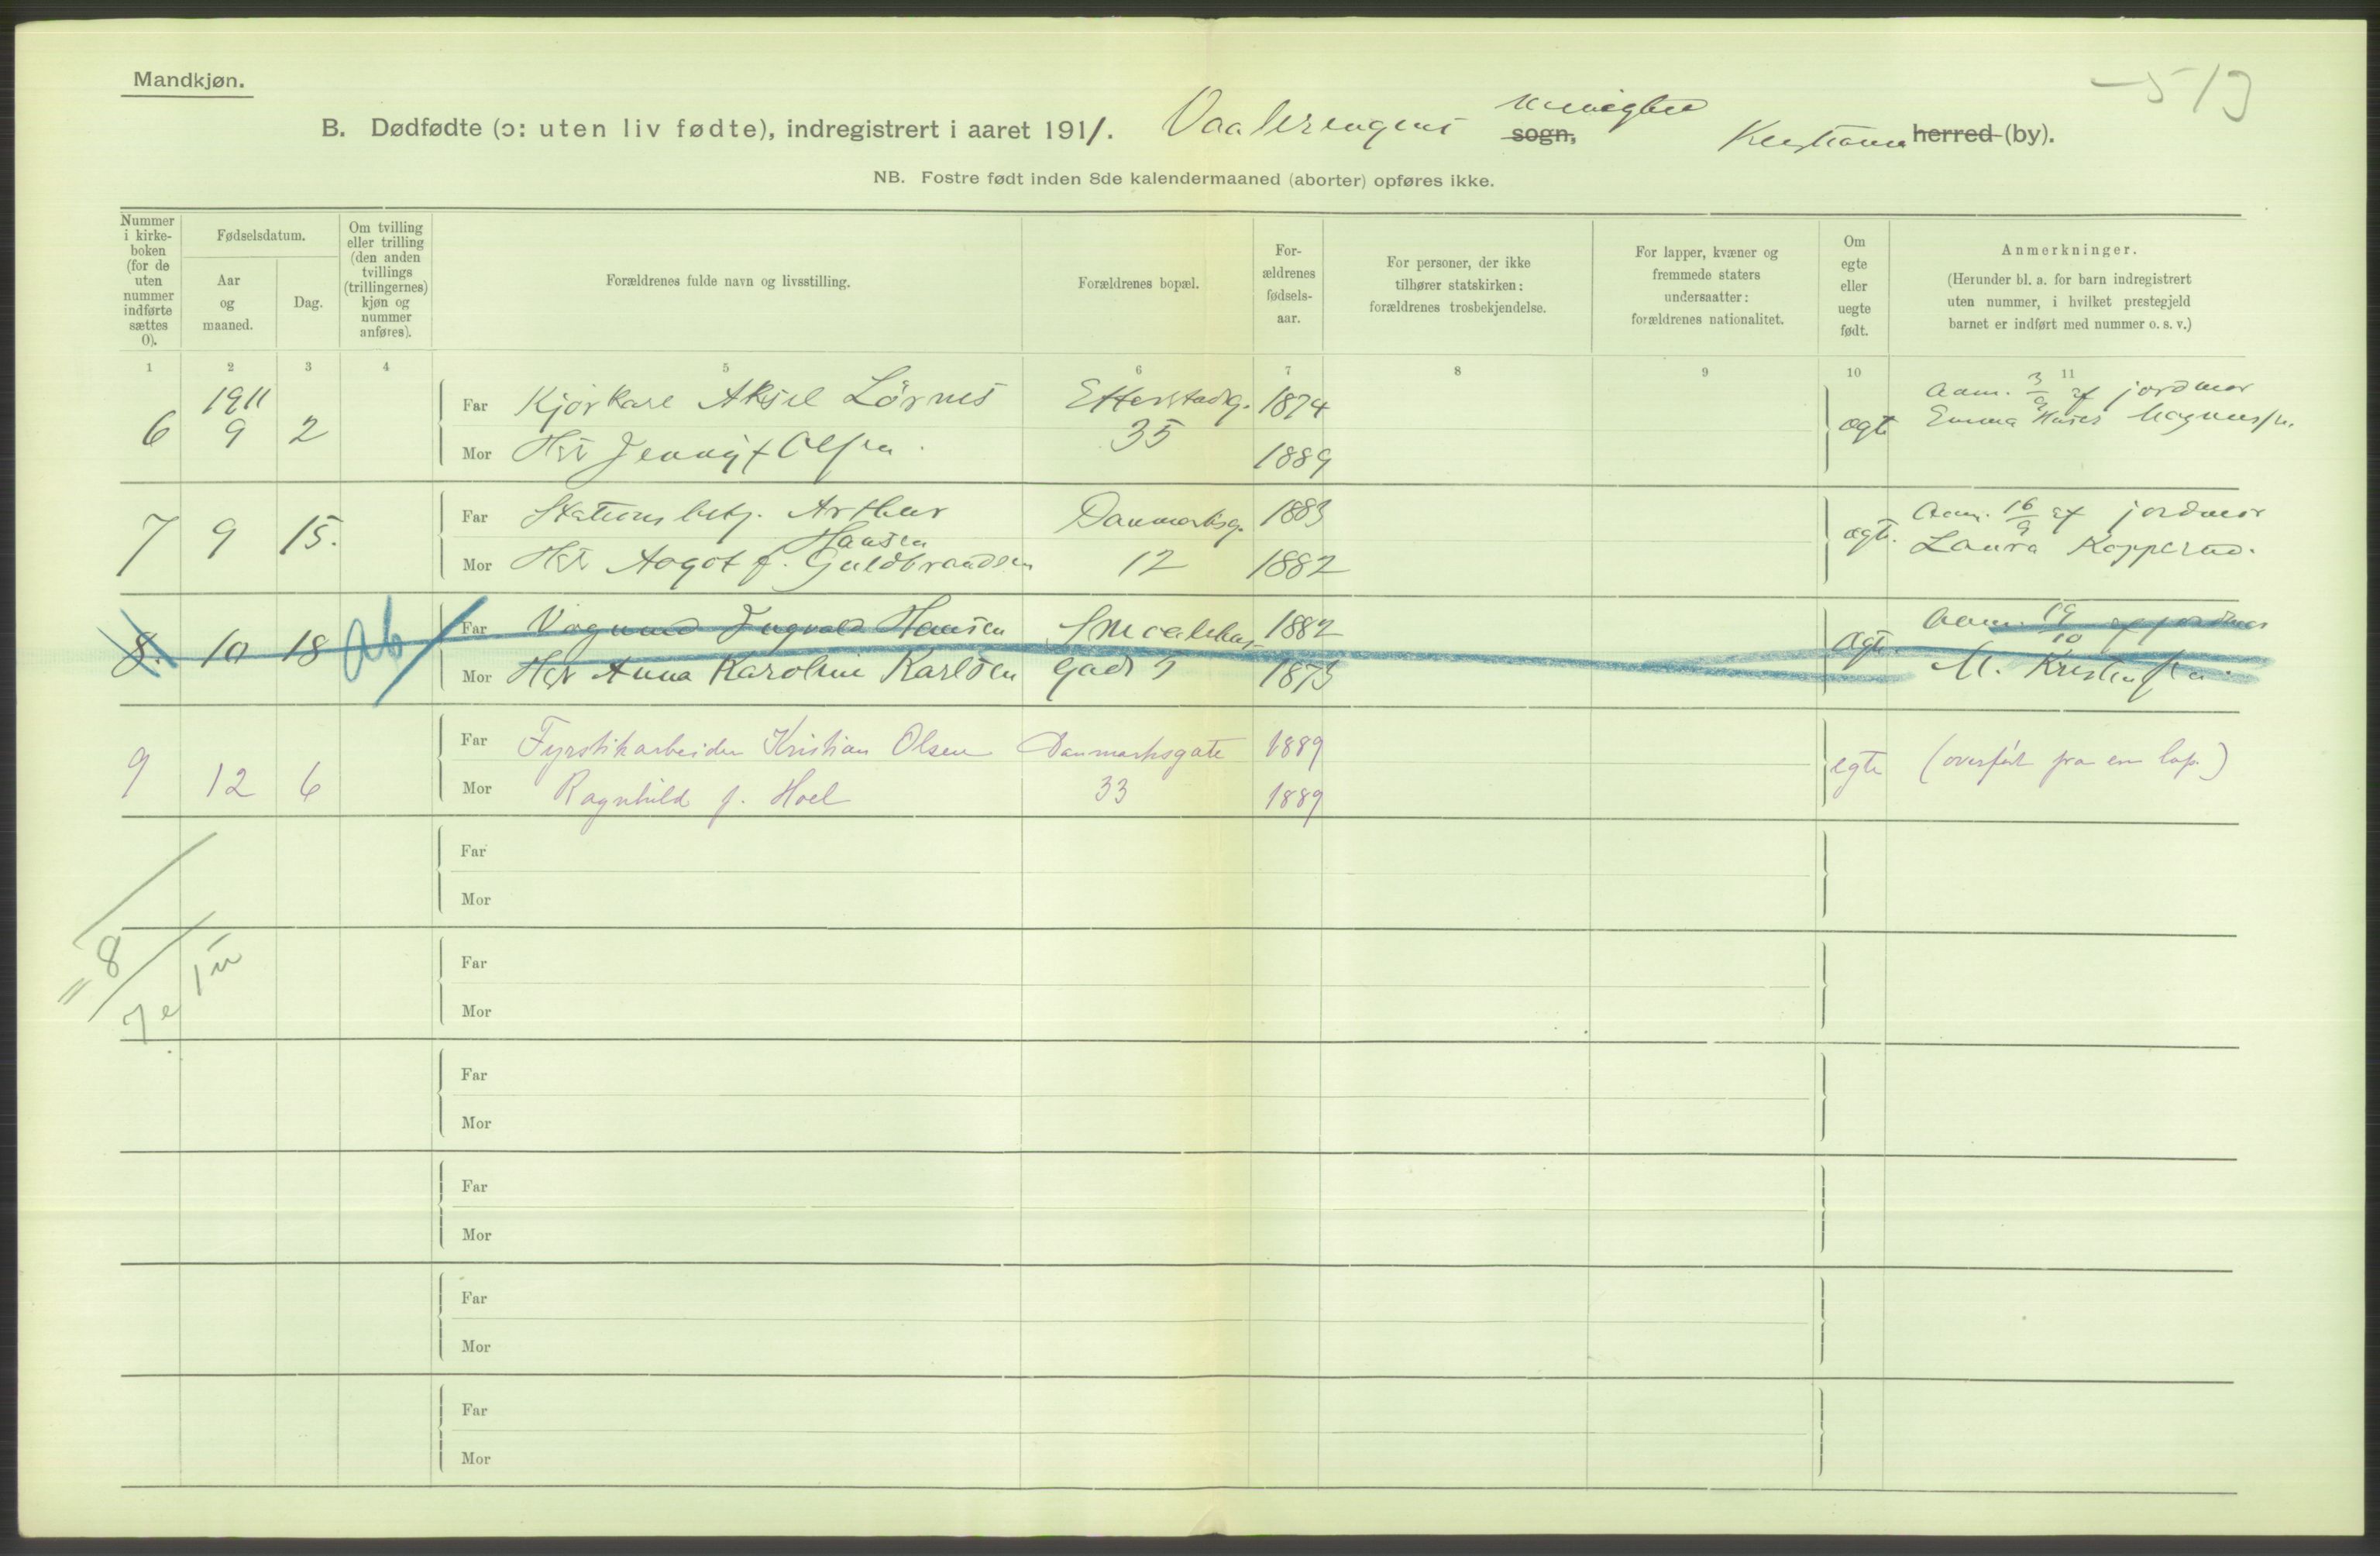 Mandkjøn.
B. Dødfødte (ɔ: uten liv fødte), indregistrert i aaret 1911. Vaalerengens menighed sogn, Kristiania herred (by).
NB. Fostre født inden 8de kalendermaaned (aborter) opføres ikke.
Nummer i kirke-boken (for de uten nummer indførte sættes 0).
Fødselsdatum.
Aar og maaned.
Dag.
Om tvilling eller trilling (den anden tvillings (trillingernes) kjøn og nummer anføres).
Forældrenes fulde navn og livsstilling.
Forældrenes bopæl.
For-ældrenes fødsels-aar.
For personer, der ikke tilhører statskirken: forældrenes trosbekjendelse.
For lapper, kvæner og fremmede staters undersaatter: forældrenes nationalitet.
Om egte eller uegte født.
Anmerkninger.
(Herunder bl. a. for barn indregistrert uten nummer, i hvilket prestegjeld barnet er indført med nummer o. s. v.)
1 2 3 4 5 6 7 8 9 10 11
1911
6 9 2 Far Kjørkarl Aksel Lørnes Etterstadg. 1874 ægte Anm. 3/9 af jordmor
Mor Hst Jenny f Olsen. 35 1889 Emma Magnussen.
7 9 15. Far Stationsbetj. Arthur Hansen Danmarksg. 1883 ægte. Anm. 16/9 af jordmor
Mor Hst Aagot f. Guldbrandsen 12 1882 Laura Kopperud.
8. 10 18 Ab Far Vognmd Ingvald Hansen Smaalens 1882 ægte Anm. 19/10 af jordmor
Mor Hst Anna Karoline Karlsen gade 5 1873 M. Kristensen.
9 12 6 Far Fyrstikarbeider Kristian Olsen Danmarksgate 1889 egte (overført fra en lap.)
Mor Ragnhild f. Hoel 33 1889
Far
Mor
= 8
7 e 1 u
Far
Mor
Far
Mor
Far
Mor
Far
Mor
Far
Mor